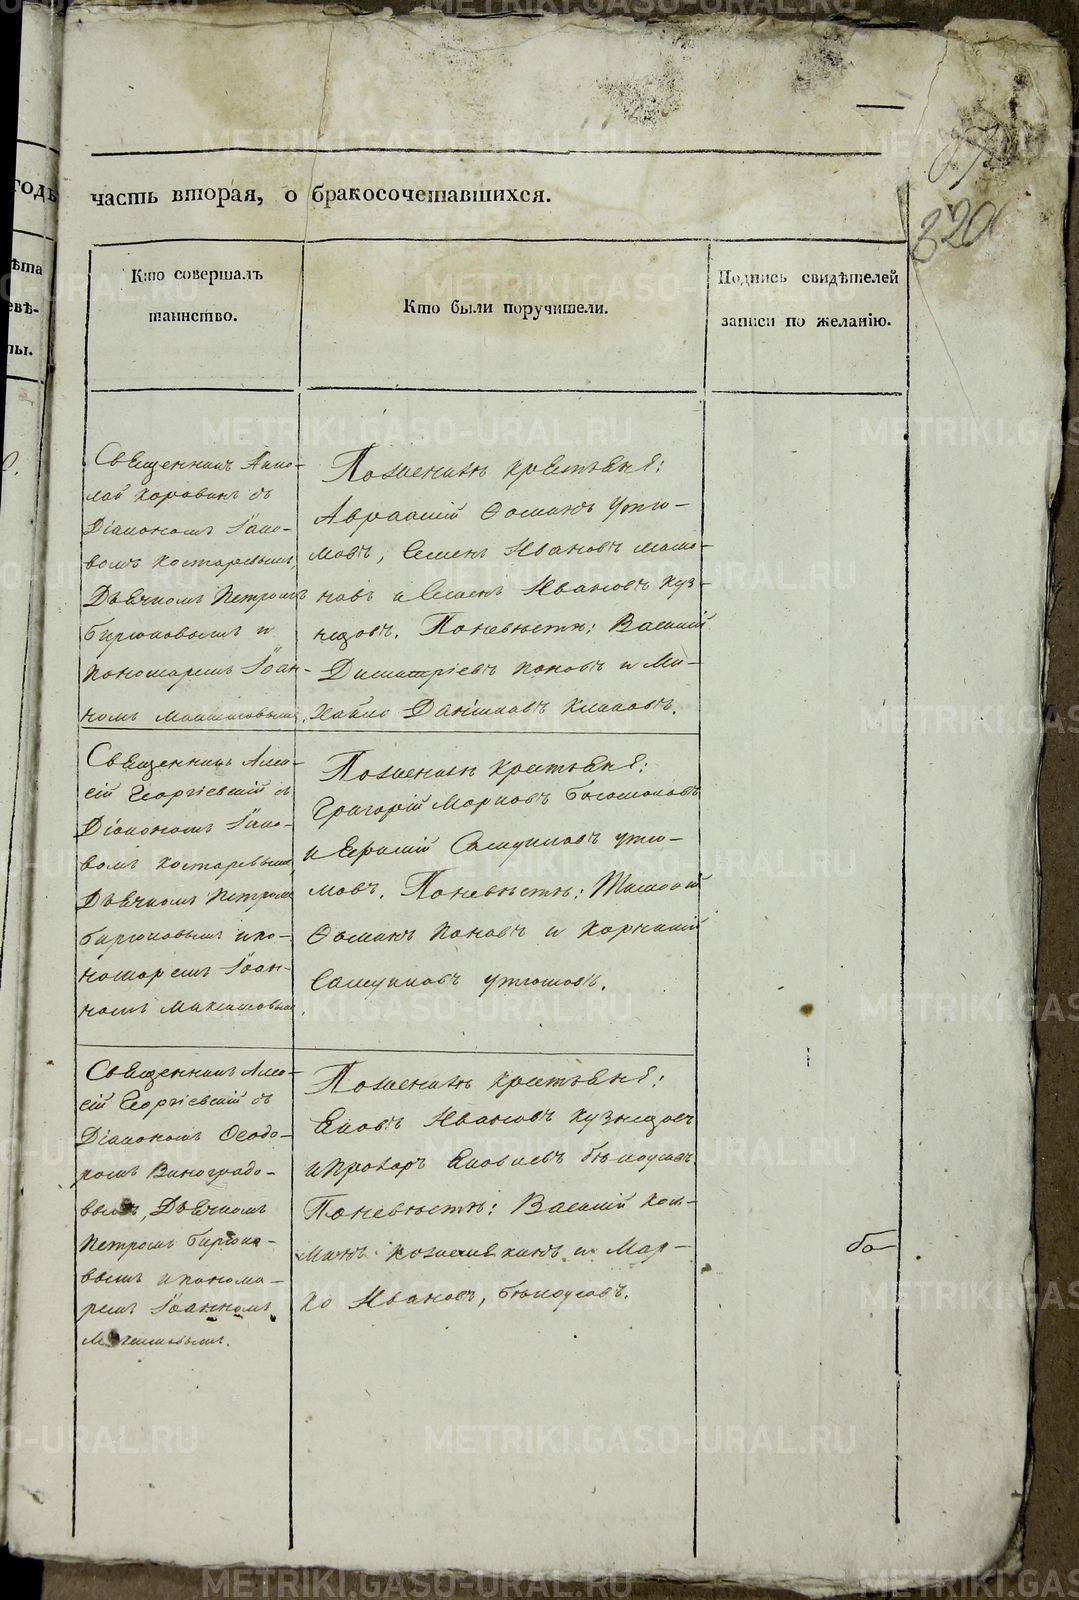 годѣ
часть вторая, о бракосочетавшихся.
820
ѣта
евѣ-
ны.
Кто совершалъ
таинство.
Кто были поручители.
Подпись свидѣтелей
записи по желанію.
Священникъ
лай Коровинъ съ
Діакономъ Іако-
вомъ Костаревымъ,
Дьячкомъ Петромъ
Бирюковымъ и
пономаремъ Іоан-
номъ Максимовымъ.
По женихѣ крестьяне:
Авраамій Ѳоминъ Утю-
мовъ, Семенъ Ивановъ
новъ и Семенъ Ивановъ Куз-
нецовъ. По невѣстѣ: Василій
Димитріевъ Поповъ и Ми-
хайло Даніиловъ
Священникъ Алек-
сій Георгіевскій съ
Діакономъ Іако-
вомъ Костаревымъ
Дьячкомъ Петромъ
Бирюковымъ и по-
номаремъ Іоан-
номъ Максимовымъ.
По женихѣ крестьяне:
Григорій Марковъ
и Герасій Самуиловъ Утю-
мовъ. По невѣстѣ: Тимоѳей
Ѳоминъ Поповъ и Корнилій
Самуиловъ Утюмовъ.
Священникъ Алек-
сій Георгіевскій съ
Діакономъ Ѳеодо-
ромъ Виноградо-
вымъ, Дьячкомъ
Петромъ Бирюко-
вымъ и понома-
ремъ Іоанномъ
Максимовымъ.
По женихѣ крестьяне:
Іаковъ Ивановъ Кузнецовъ
и Прохоръ Яковлевъ Бѣлоусовъ
По невѣстѣ: Василій Козь-
минъ Кожевкинъ и Мар-
ко Ивановъ, Бѣлоусовъ.
бо-
METRIKI.GASO-URAL.RU